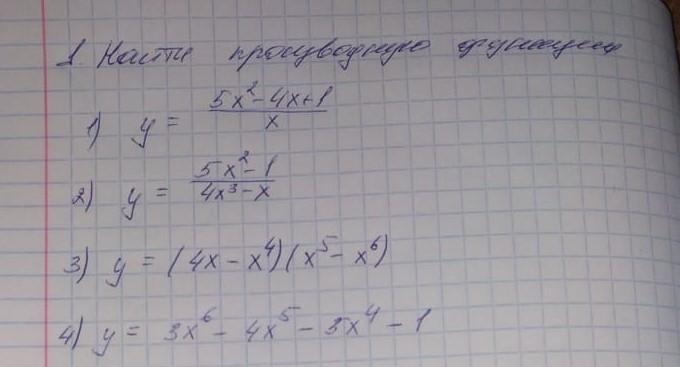 1. Найти производную функции
1) y = (5x² - 4x + 1) / x
2) y = (5x² - 1) / (4x³ - x)
3) y = (4x - x⁴)(x⁵ - x⁶)
4) y = 3x⁶ - 4x⁵ - 3x⁴ - 1